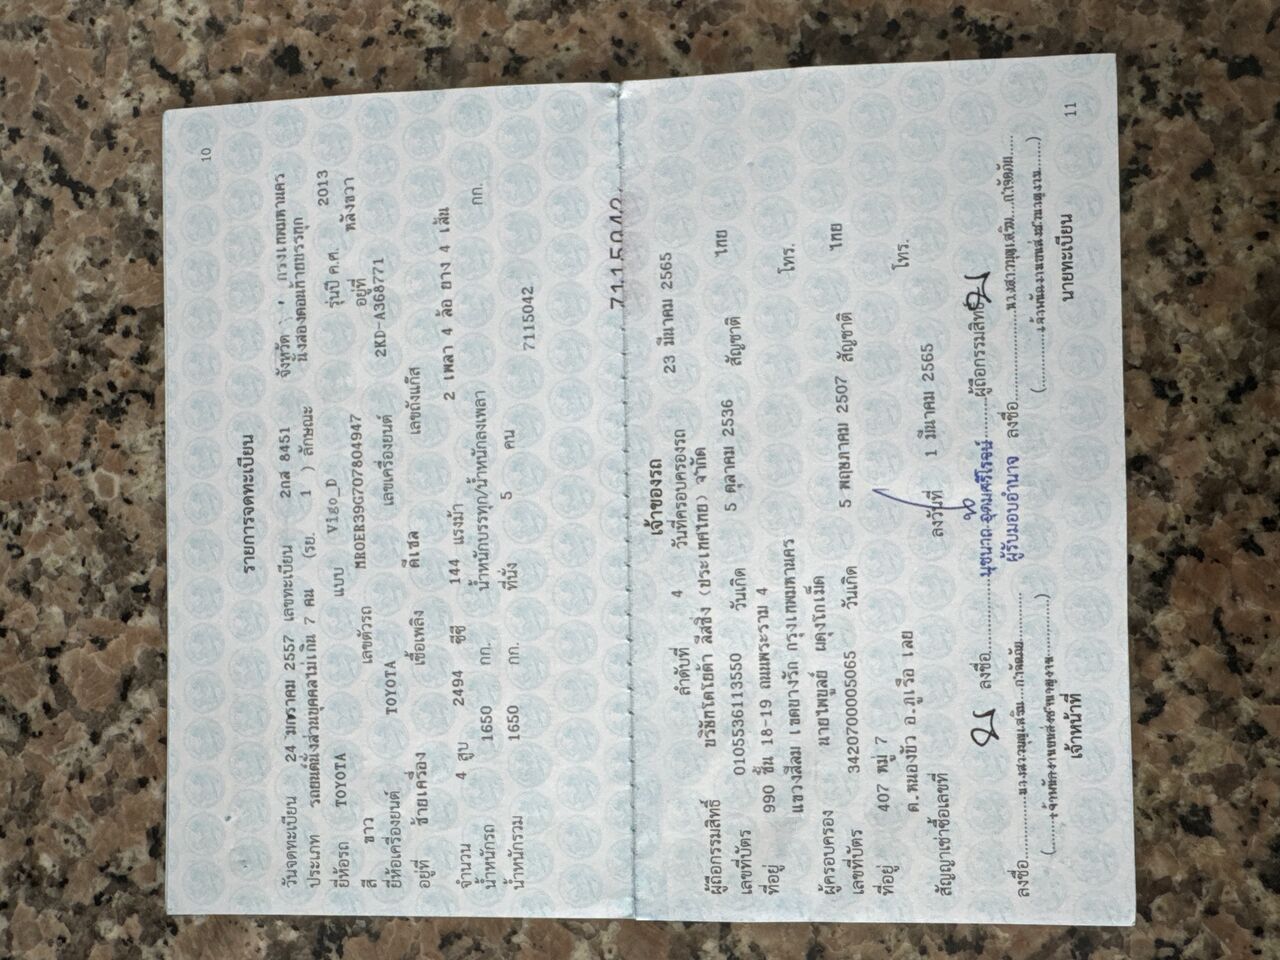 10
รายการจดทะเบียน
วันจดทะเบียน 24 มกราคม 2557 เลขทะเบียน 2กส 8451 จังหวัด กรุงเทพมหานคร
ประเภท รถยนต์นั่งส่วนบุคคลไม่เกิน 7 คน (รย. 1 ) ลักษณะ นั่งสองตอนท้ายบรรทุก
ยี่ห้อรถ TOYOTA แบบ Vigo_D รุ่นปี ค.ศ. 2013
สี ขาว เลขตัวรถ MR0ER39G707804947 อยู่ที่ หลังขวา
ยี่ห้อเครื่องยนต์ TOYOTA เลขเครื่องยนต์ 2KD-A368771
อยู่ที่ ซ้ายเครื่อง เชื้อเพลิง ดีเซล เลขถังแก๊ส
จำนวน 4 สูบ 2494 ซีซี 144 แรงม้า 2 เพลา 4 ล้อ ยาง 4 เส้น
น้ำหนักรถ 1650 กก. น้ำหนักบรรทุก/น้ำหนักลงเพลา กก.
น้ำหนักรวม 1650 กก. ที่นั่ง 5 คน 7115042
7115042
เจ้าของรถ
ลำดับที่ 4 วันที่ครอบครองรถ 23 มีนาคม 2565
ผู้ถือกรรมสิทธิ์ บริษัทโตโยต้า ลีสซิ่ง (ประเทศไทย) จำกัด
เลขที่บัตร 0105536113550 วันเกิด 5 ตุลาคม 2536 สัญชาติ ไทย
ที่อยู่ 990 ชั้น 18-19 ถนนพระราม 4
แขวงสีลม เขตบางรัก กรุงเทพมหานคร โทร.
ผู้ครอบครอง นายไพบูลย์ ผดุงโกเม็ด
เลขที่บัตร 3420700005065 วันเกิด 5 พฤษภาคม 2507 สัญชาติ ไทย
ที่อยู่ 407 หมู่ 7
ต.หนองบัว อ.ภูเรือ เลย โทร.
สัญญาเช่าซื้อเลขที่ ลงวันที่ 1 มีนาคม 2565
ลงชื่อ ผู้ถือกรรมสิทธิ์
ผู้รับมอบอำนาจ
ลงชื่อ ลงชื่อ
เจ้าหน้าที่ นายทะเบียน
11